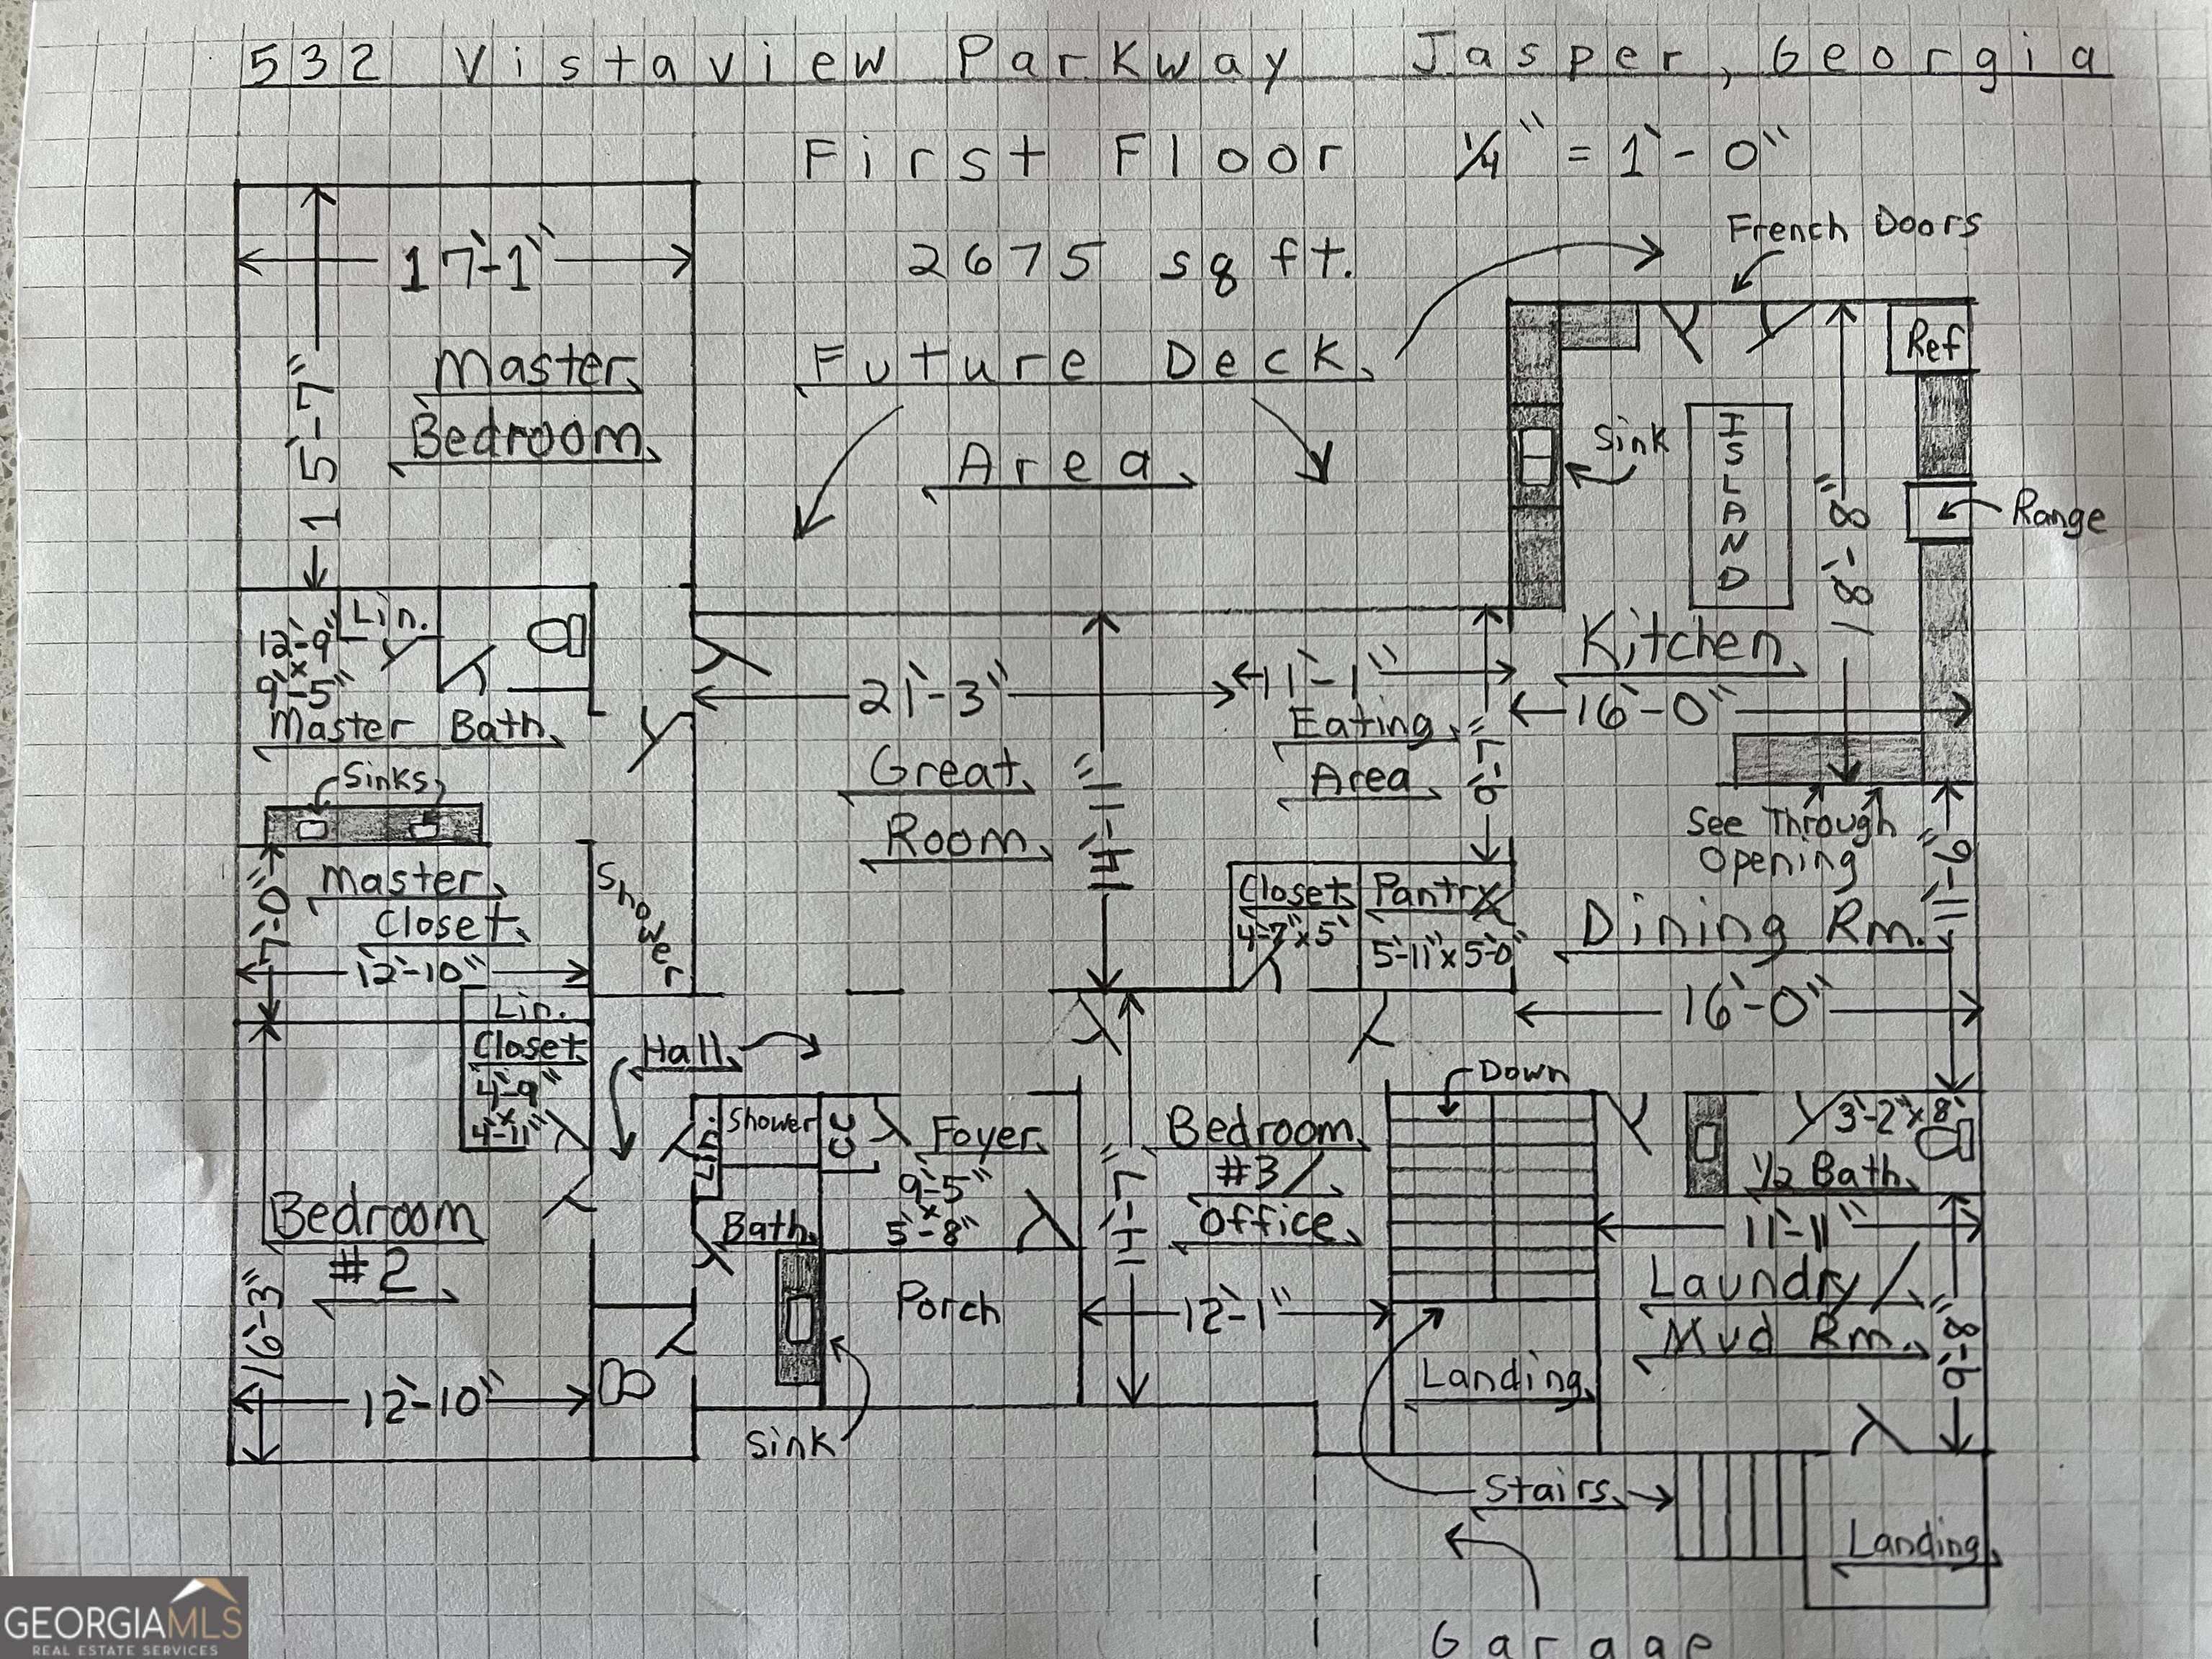 532 Vistaview Parkway Jasper, Georgia
First Floor 1/4" = 1'-0"
2675 sq ft.
French Doors
17'-1"
15'-7"
Master
Bedroom
Future Deck
Area
Ref
Sink
ISLAND
18'-8"
Range
Kitchen
16'-0"
Lin.
12'-9"
x
9'-5"
Master Bath
Sinks
21'-3"
Great
Room
11'-1"
Eating
Area
See Through
Opening
Master
Closet
7'-0"
12'-10"
Shower
Closet
4'-7" x 5'
Pantry
5'-11" x 5'-0"
Dining Rm.
11'-9"
16'-0"
Lin.
Closet
4'-9"
x
4'-11"
Hall
Down
Lin.
Shower
Foyer
9'-5"
x
5'-8"
Bedroom
#3 /
Office
3'-2" x 8'
1/2 Bath
Bedroom
#2
16'-3"
12'-10"
Bath
Porch
12'-1"
11'-11"
Laundry /
Mud Rm.
9'-8"
Landing
Sink
Stairs
Landing
Garage
GEORGIAMLS
REAL ESTATE SERVICES